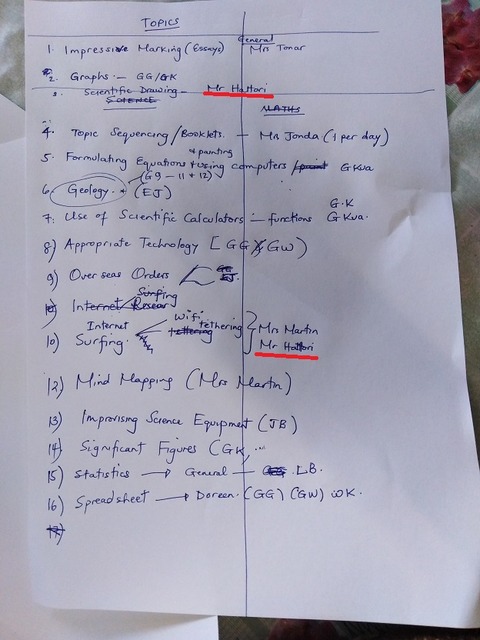 TOPICS
General
1. Impressive Marking (Essays) Mrs Tonar
2. Graphs:- GG/GK
3. Scientific Drawing - Mr Hattori
SCIENCE MATHS
4. Topic Sequencing/Booklets. - Mrs Jonda (1 per day)
+ painting
5. Formulating Equations + using computers /print GKua
(G9 - 11 + 12)
6. Geology. (EJ)
G.K
7. Use of Scientific Calculators - functions GKua.
8) Appropriate Technology [GG GW)
9) Overseas Orders GG
EJ.
Surfing
10) Internet
Internet Wifi tethering Mrs Martin
10) Surfing. tethering Mr Hattori
12) Mind Mapping (Mrs Martin)
13) Improvising Science Equipment (JB)
14) Significant Figures (GK,...
15) Statistics → General - LB.
16) Spreadsheet → Doreen. (GG) (GW) WK.
17)